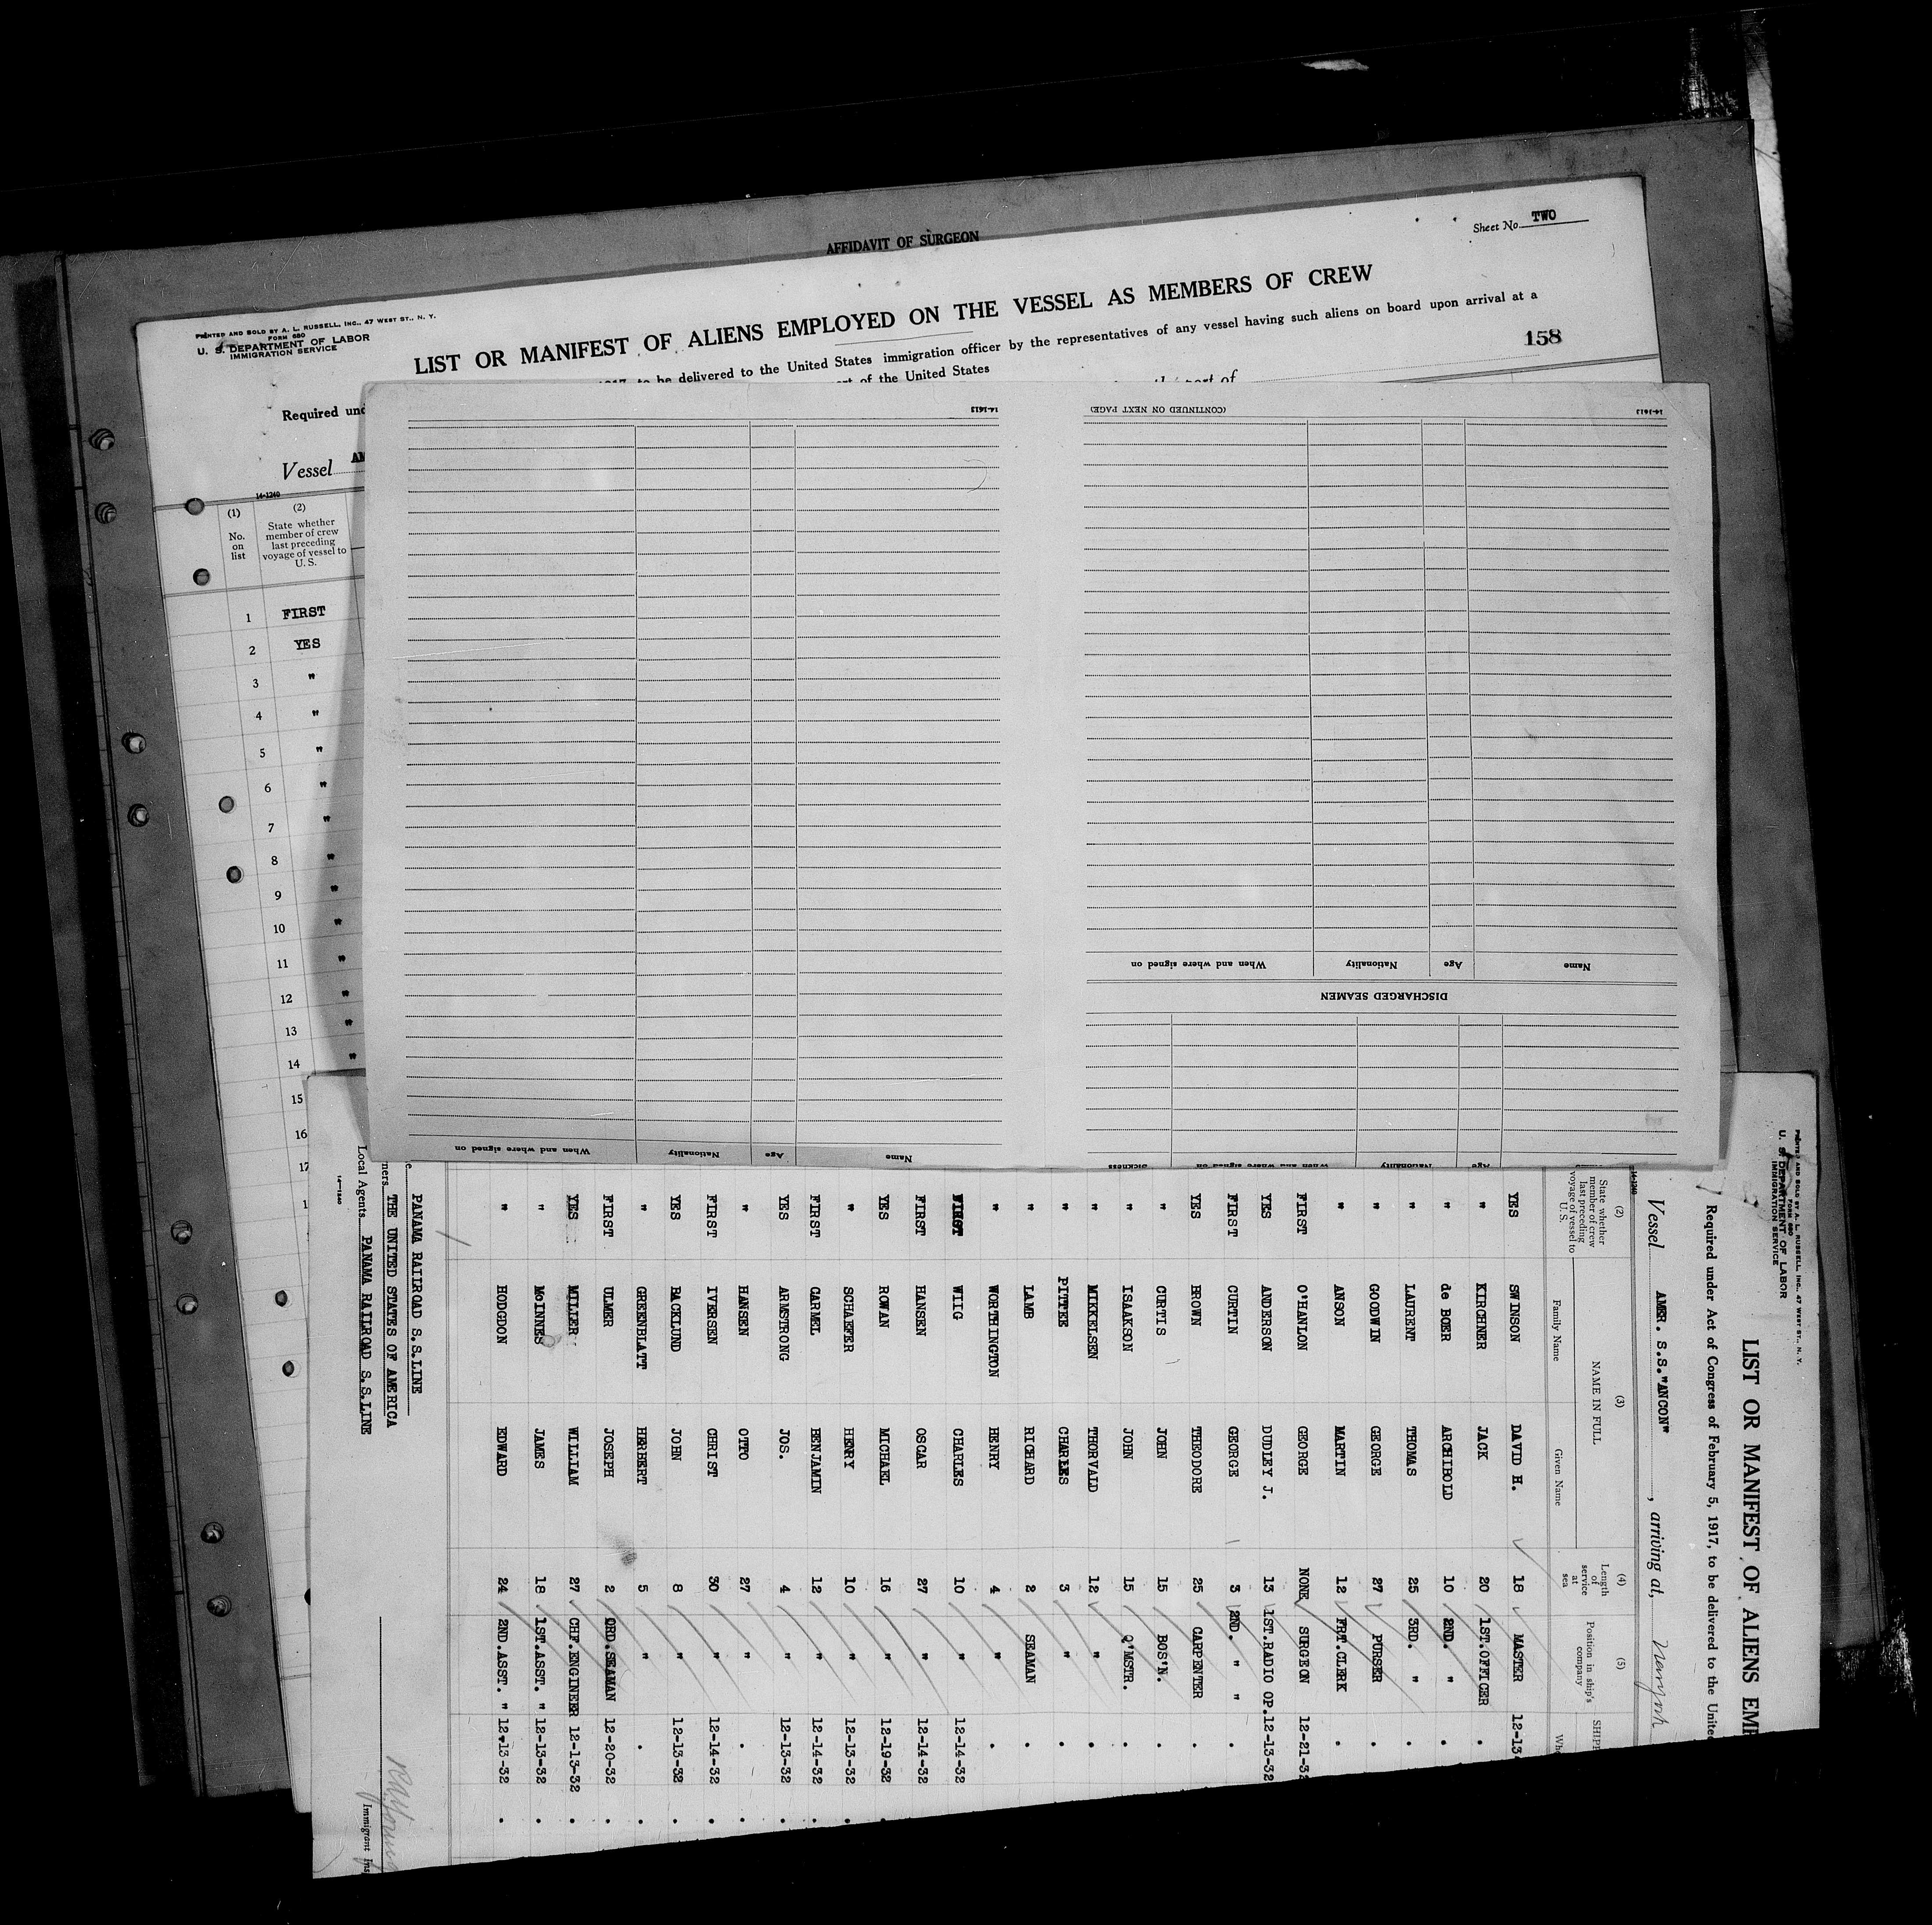 AFFIDAVIT OF SURGEON
Sheet No. TWO
PRINTED AND SOLD BY A. L. RUSSELL, INC., 47 WEST ST., N. Y.
FORM 680
U. S. DEPARTMENT OF LABOR
IMMIGRATION SERVICE
LIST OR MANIFEST OF ALIENS EMPLOYED ON THE VESSEL AS MEMBERS OF CREW
Required und
to be delivered to the United States immigration officer by the representatives of any vessel having such aliens on board upon arrival at a
of the United States
158
Vessel
14-1240
(1) No. on list
(2) State whether member of crew last preceding voyage of vessel to U. S.
1 FIRST
2 YES
3 "
4 "
5 "
6 "
7 "
8 "
9 "
10 "
11 "
12 "
13 "
14 "
15
16
17
14-1613
(CONTINUED ON NEXT PAGE)
14-1613
Name Age Nationality When and where signed on
DISCHARGED SEAMEN
Name Age Nationality When and where signed on
Age Nationality When and where signed on Sickness
PRINTED AND SOLD BY A. L. RUSSELL, INC., 47 WEST ST., N. Y.
FORM 680
U. S. DEPARTMENT OF LABOR
IMMIGRATION SERVICE
LIST OR MANIFEST OF ALIENS EMP
Required under Act of Congress of February 5, 1917, to be delivered to the Unite
Vessel AMER. S.S."ANCON", arriving at,
14-1240
(2) State whether member of crew last preceding voyage of vessel to U. S.
(3) NAME IN FULL
Family Name Given Name
(4) Length of service at sea
(5) Position in ship's company
SHIPP
Whe
YES SWINSON DAVID H. 18 MASTER 12-13
" KIRCHNER JACK 20 1ST.OFFICER "
" de BOER ARCHIBOLD 10 2ND. " "
" LAURENT THOMAS 25 3RD. " "
" GOODWIN GEORGE 27 PURSER "
" ANSON MARTIN 12 FRT.CLERK "
FIRST O'HANLON GEORGE NONE SURGEON 12-21-32
YES ANDERSON DUDLEY J. 13 1ST.RADIO OP. 12-13-32
FIRST CURTIN GEORGE 3 2ND. " " "
YES BROWN THEODORE 25 CARPENTER "
" CURTIS JOHN 15 BOS'N. "
" ISAAKSON JOHN 15 Q'MSTR. "
" MIKKELSEN THORVALD 12 " "
" PITTEE CHARLES 3 " "
" LAMB RICHARD 2 SEAMAN "
" WORTHINGTON HENRY 4 " "
FIRST WIIG CHARLES 10 " 12-14-32
FIRST HANSEN OSCAR 27 " 12-14-32
YES ROWAN MICHAEL 16 " 12-19-32
" SCHAEFER HENRY 10 " 12-13-32
FIRST CARMEL BENJAMIN 12 " 12-14-32
YES ARMSTRONG JOS. 4 " 12-13-32
" HANSEN OTTO 27 " "
FIRST IVERSEN CHRIST 30 " 12-14-32
YES BACKLUND JOHN 8 " 12-13-32
" GREENBLATT HERBERT 5 " "
FIRST ULMER JOSEPH 2 ORD.SEAMAN 12-20-32
YES MILER WILLIAM 27 CHF.ENGINEER 12-13-32
" McINNES JAMES 18 1ST.ASST. " 12-13-32
" HODGDON EDWARD 24 2ND.ASST. " 12-13-32
PANAMA RAILROAD S.S.LINE
ners THE UNITED STATES OF AMERICA
Local Agents PANAMA RAILROAD S.S.LINE
Immigrant Ins
14-1240